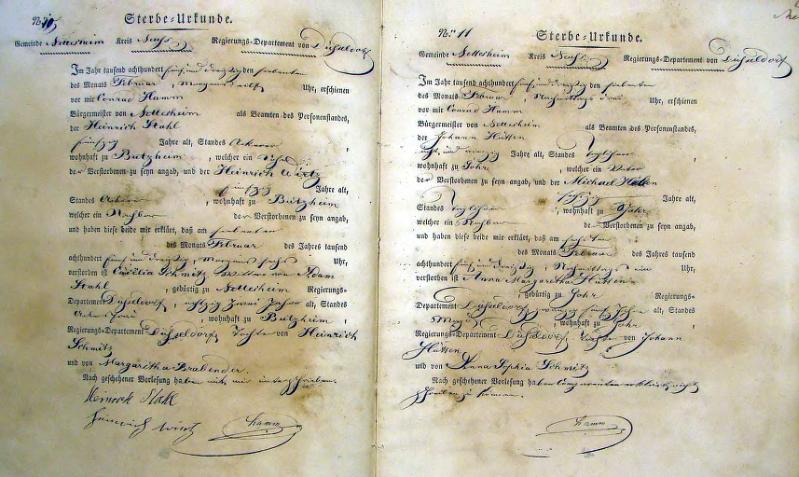 Nro 10
Sterbe-Urkunde.
Gemeinde Nettesheim Kreis Neuss Regierungs-Departement von Düsseldorf
Im Jahr tausend achthundert fünf und dreißig den siebenten
des Monats Februar, Morgens elf Uhr, erschienen
vor mir Conrad Hamm
Bürgermeister von Nettesheim als Beamten des Personenstandes,
der Heinrich Stahl
fünfzig Jahre alt, Standes Ackerer
wohnhaft zu Butzheim, welcher ein Sohn
der Verstorbenen zu seyn angab, und der Heinrich Wirtz
fünfzig Jahre alt,
Standes Ackerer, wohnhaft zu Butzheim
welcher ein Nachbar der Verstorbenen zu seyn angab,
und haben diese beide mir erklärt, daß am siebenten
des Monats Februar des Jahres tausend
achthundert fünf und dreißig, Morgens sechs Uhr,
verstorben ist Cäcilia Schmitz Wittwe von Adam
Stahl, gebürtig zu Nettesheim Regierungs-
Departement Düsseldorf, achtzig zwei Jahre alt, Standes
, wohnhaft zu Butzheim,
Regierungs-Departement Düsseldorf, Tochter von Heinrich
Schmitz
und von Margaretha Brabender.
Nach geschehener Vorlesung haben mir unterschrieben
Heinrich Stahl
Heinrich Wirtz Hamm
Nro 11
Sterbe-Urkunde.
Gemeinde Nettesheim Kreis Neuss Regierungs-Departement von Düsseldorf
Im Jahr tausend achthundert fünf und dreißig den siebenten
des Monats Februar, Nachmittags Uhr, erschienen
vor mir Conrad Hamm
Bürgermeister von Nettesheim als Beamten des Personenstandes,
der Johann Hütten
Jahre alt, Standes Taglöhner
wohnhaft zu Gohr, welcher ein Vater
der Verstorbenen zu seyn angab, und der Michael
Jahre alt,
Standes Taglöhner, wohnhaft zu Gohr
welcher ein Nachbar der Verstorbenen zu seyn angab,
und haben diese beide mir erklärt, daß am
des Monats Februar des Jahres tausend
achthundert fünf und dreißig, Nachmittags Uhr,
verstorben ist Anna Margaretha Hütten
, gebürtig zu Gohr Regierungs-
Departement Düsseldorf, zwanzig fünf Jahre alt, Standes
Magd, wohnhaft zu Gohr,
Regierungs-Departement Düsseldorf, Tochter von Johann
Hütten
und von Anna Sophia Schmitz
Nach geschehener Vorlesung haben erklärt nicht
schreiben zu können.
Hamm